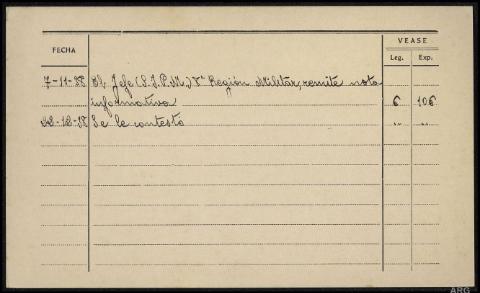 VEASE
FECHA
Leg. Exp.
7-11-38 El Jefe (S.I.P.M.) 5ª Región Militar, remite nota
informativa 6 106
22-12-38 Se le contesta " "
ARG